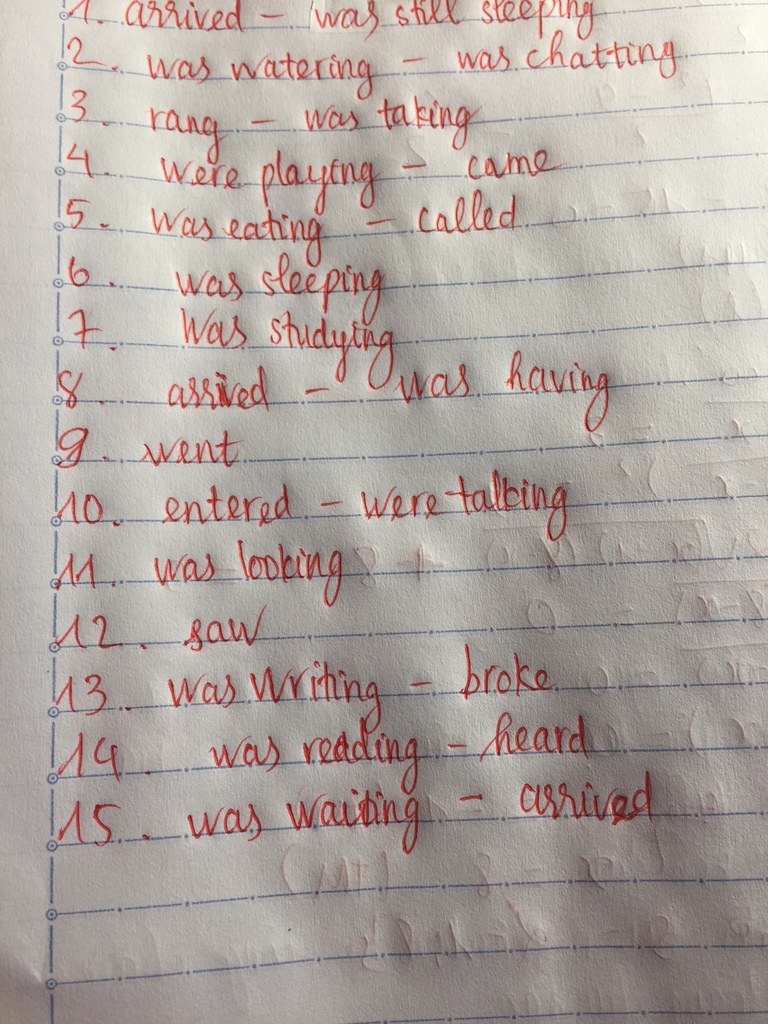 1. arrived – was still sleeping
2. was watering – was chatting
3. rang – was taking
4. were playing – came
5. was eating – called
6. was sleeping
7. Was studying
8. arrived – was having
9. went
10. entered – were talking
11. was looking
12. saw
13. was writing – broke
14. was reading – heard
15. was waiting – arrived